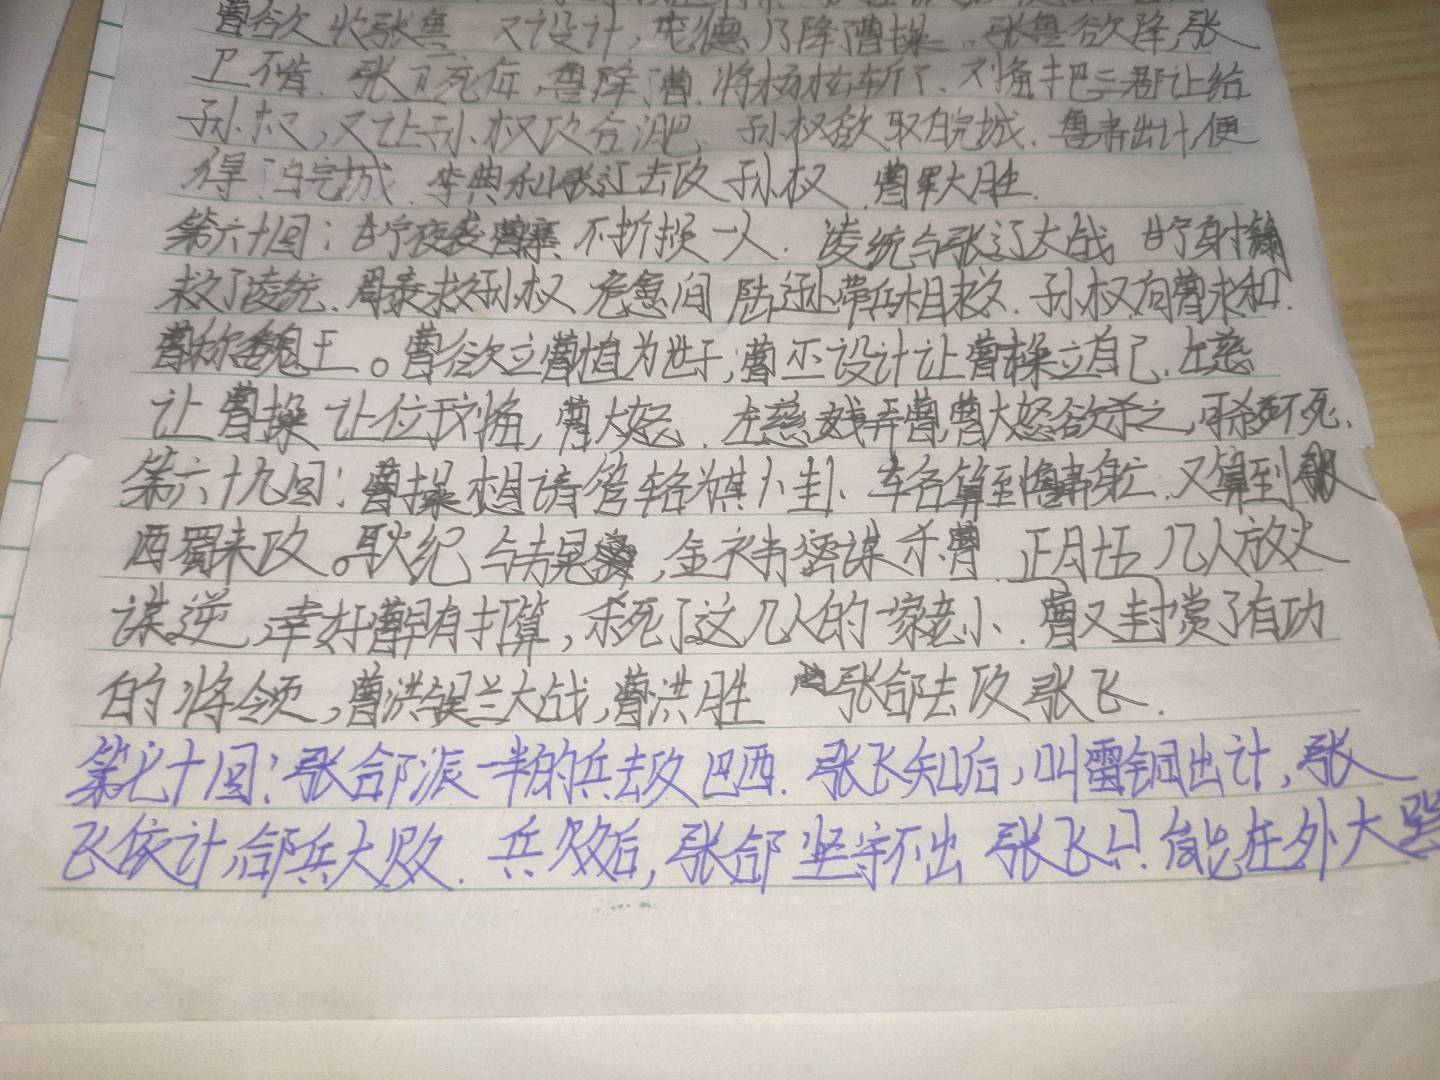 曹欲收张鲁 又设计,庞德乃降曹操。张鲁欲降,张
卫不肯.张卫死后,鲁降曹.将杨松斩了.刘备把三郡让给
孙权,又让孙权攻合淝.孙权欲取皖城.鲁肃出计,便
得 皖城.李典和张辽去攻孙权.曹军大胜.
第六十回:甘宁夜袭曹寨 不折损一人.凌统与张辽大战 甘宁射箭
救了凌统.周泰救孙权 危急间 陆逊带兵相救.孙权向曹求和.
曹称魏王。曹欲立曹植为世子,曹丕设计让曹操立自己.左慈
让曹操让位于刘备,曹大怒.左慈戏弄曹,曹大怒欲杀之,
第六十九回:曹操想请管辂为其卜卦.辂算到鲁肃身亡.又算到
西蜀来攻。耿纪与韦晃,金祎密谋杀曹.正月十五 几人放火
谋逆,幸好曹早有打算,杀死了这几人的一家老小.曹又封赏了有功
的将领,曹洪吴兰大战,曹洪胜 张郃去攻张飞.
第七十回:张郃派一半的兵去攻巴西.张飞知后,叫雷铜出计,张
飞依计,郃兵大败.兵败后,张郃坚守不出 张飞只能在外大骂